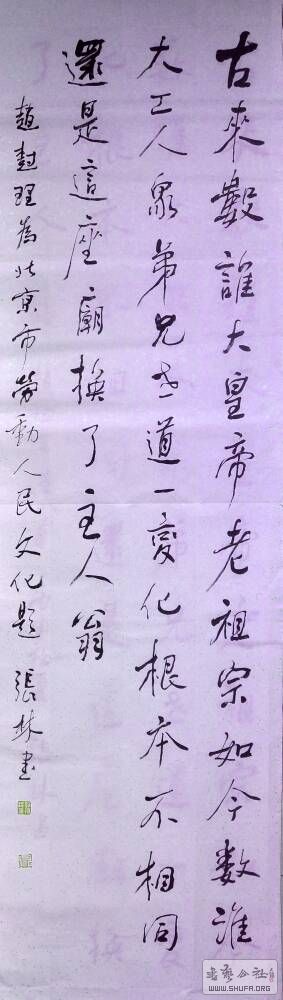 古來數誰大皇帝老祖宗如今数誰
大工人衆弟兄世道一變化根本不相同
還是這座廟換了主人翁
趙樹理為北京市勞動人民文化題 張林書
书艺公社
WWW.SHUFA.ORG